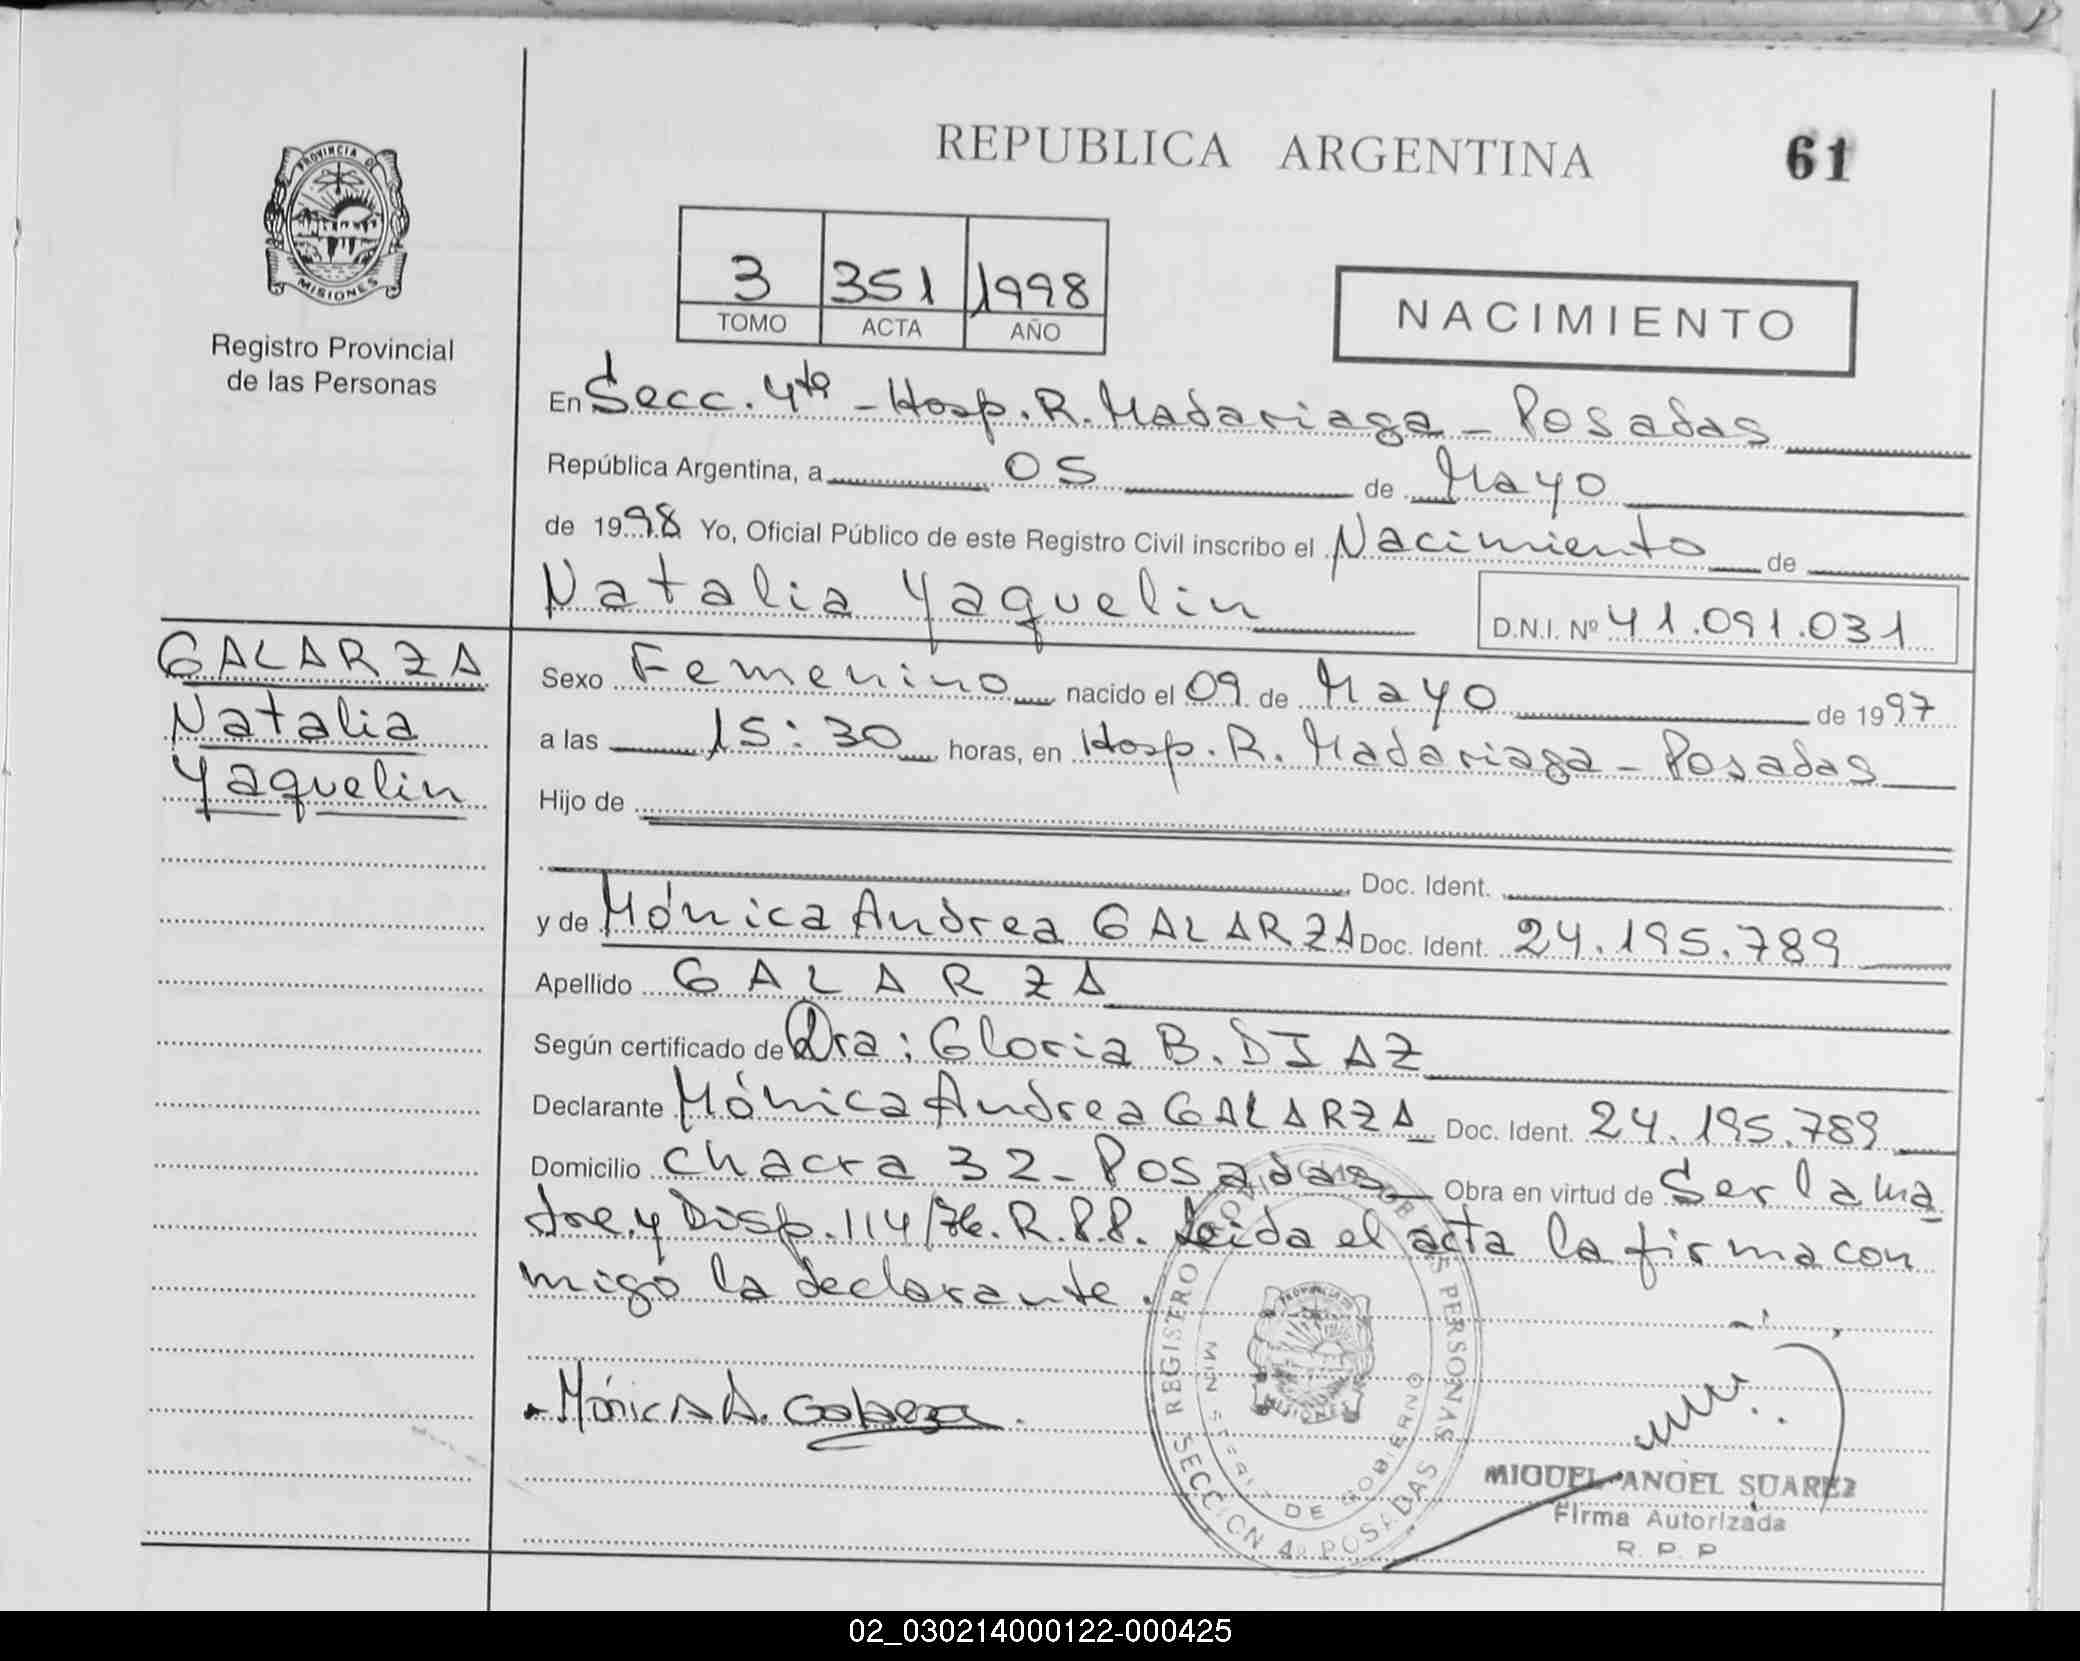 REPUBLICA ARGENTINA
61
PROVINCIA DE
MISIONES
Registro Provincial
de las Personas
3 351 1998
TOMO ACTA AÑO
NACIMIENTO
En Secc. 4ta - Hosp. R. Madariaga - Posadas
República Argentina, a 05 de Mayo
de 1998 Yo, Oficial Público de este Registro Civil inscribo el Nacimiento de
Natalia Yaquelin
D.N.I. Nº 41.091.031
GALARZA
Natalia
Yaquelin
Sexo Femenino nacido el 09 de Mayo de 1997
a las 15:30 horas, en Hosp. R. Madariaga - Posadas
Hijo de
Doc. Ident.
y de Mónica Andrea GALARZA Doc. Ident. 24.195.789
Apellido GALARZA
Según certificado de Dra: Gloria B. DIAZ
Declarante Mónica Andrea GALARZA Doc. Ident. 24.195.789
Domicilio Chacra 32 - Posadas Obra en virtud de Ser la ma
dre y Disp. 114/76. R.P.P. Leida el acta la firma con
migo la declarante.
Mónica A. Galarza
REGISTRO PROVINCIAL DE LAS PERSONAS
MINISTERIO DE GOBIERNO
SECCION 4º POSADAS
MIGUEL ANGEL SUAREZ
Firma Autorizada
R. P. P
02_030214000122-000425